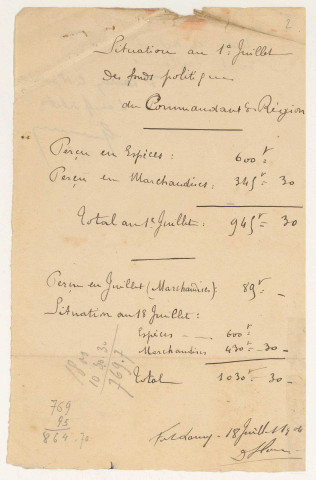 2
Situation au 1er Juillet
des fonds politiques
du Commandant de Région
Perçu en Espèces : 600f
Perçu en Marchandises : 345f= 30
Total au 1er Juillet : 945f 30
Perçu en Juillet (Marchandises) : 85f= -
Situation au 18 Juillet :
Espèces - 600f
Marchandises 430f= 30 -
Total 1030f= 30 -
769.7
769
95
864.70
18 Juillet